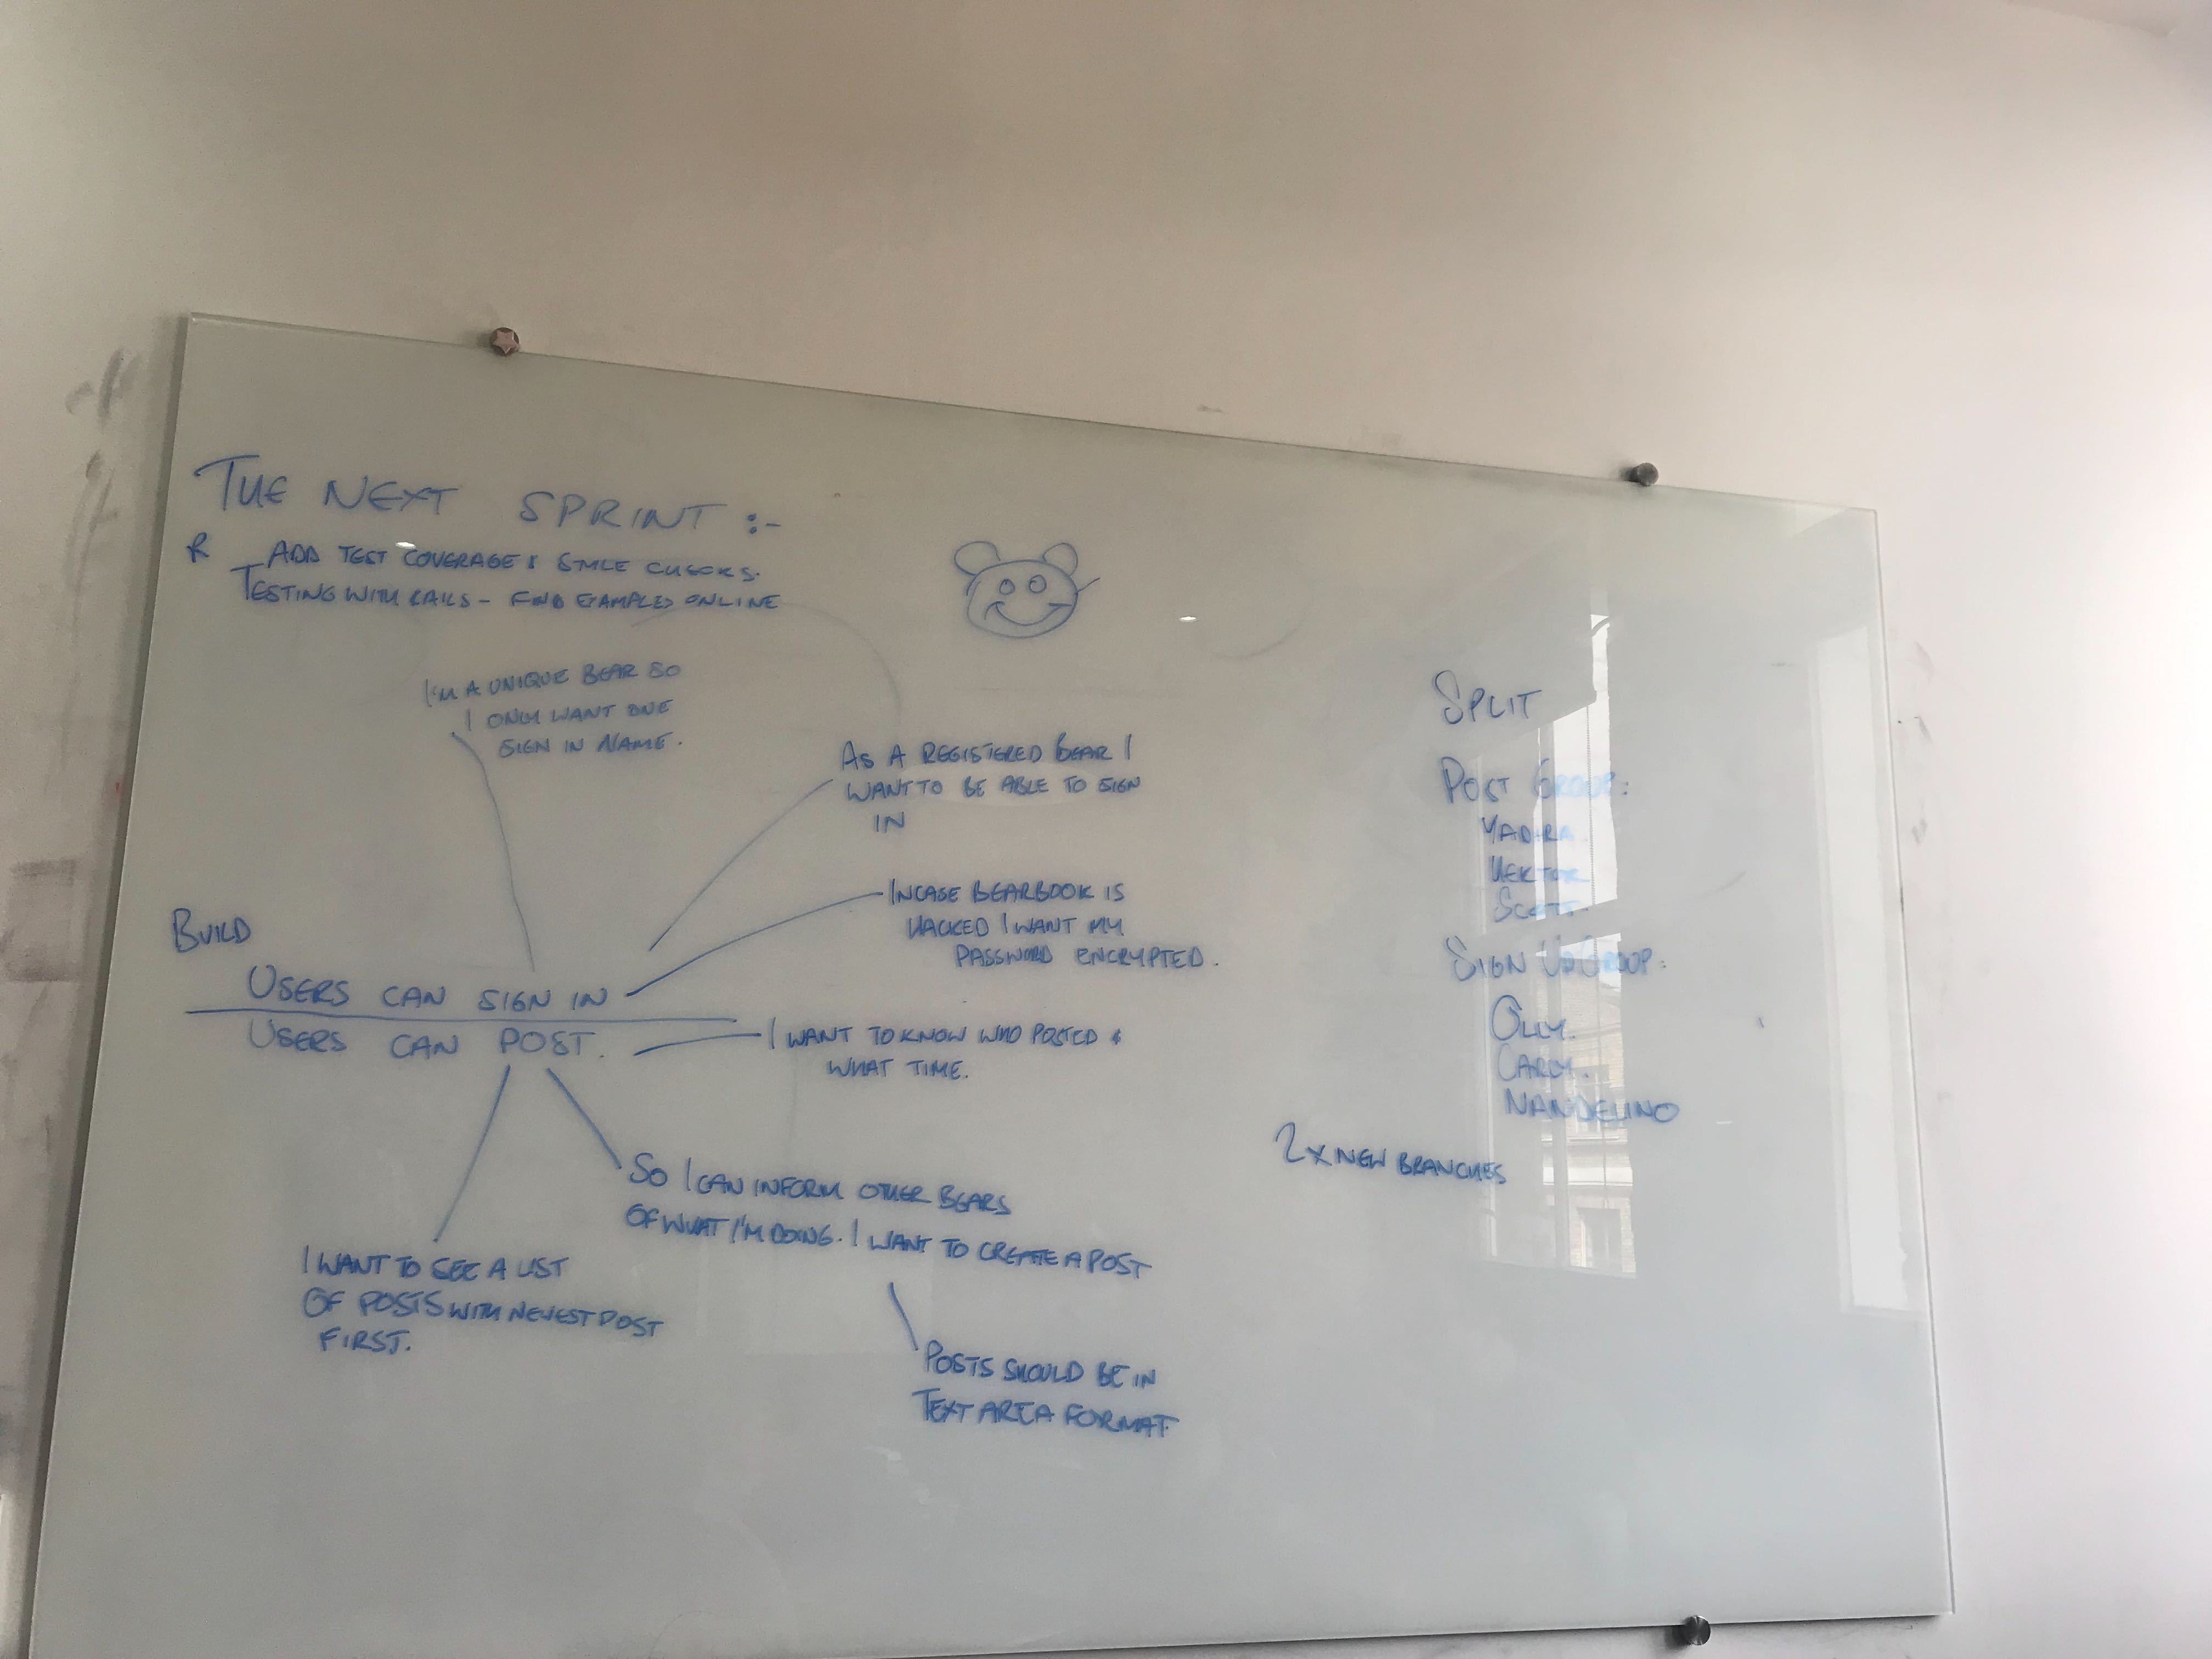 THE NEXT SPRINT :-
R ADD TEST COVERAGE & STYLE CHECKS.
TESTING WITH RAILS - FIND EXAMPLES ONLINE
I'M A UNIQUE BEAR SO
I ONLY WANT ONE
SIGN IN NAME.
AS A REGISTERED BEAR I
WANT TO BE ABLE TO SIGN
IN
INCASE BEARBOOK IS
HACKED I WANT MY
PASSWORD ENCRYPTED.
BUILD
USERS CAN SIGN IN
USERS CAN POST.
I WANT TO KNOW WHO POSTED &
WHAT TIME.
SO I CAN INFORM OTHER BEARS
OF WHAT I'M DOING. I WANT TO CREATE A POST
I WANT TO SEE A LIST
OF POSTS WITH NEWEST POST
FIRST.
POSTS SHOULD BE IN
TEXT AREA FORMAT.
SPLIT
POST GROUP:
YADIRA.
HEKTOR
SCOTT.
SIGN UP GROUP:
OLLY.
CARLY.
NANDELINO
2X NEW BRANCHES